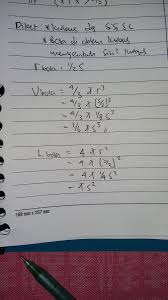 Diket : Kubus dg SS SC
* Bola di dalam kubus
menyentuh sisi² kubus
r bola : 1/2 S
V bola = 4/3 π r³
= 4/3 π (S/2)³
= 4/3 π 1/8 S³
= 1/6 π S³
L bola = 4 π r²
= 4 π (S/2)²
= 4 π 1/4 S²
= π S²